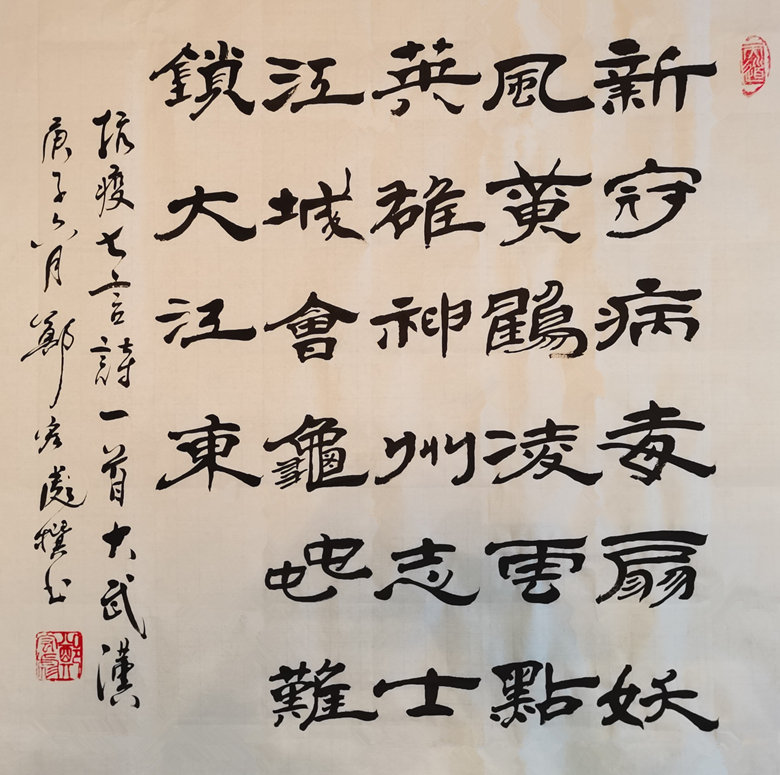 新冠病毒扇妖
風黄鶴凌雲點
英雄神州志士
江城會龜蛇難
鎖大江東
抗疫七言詩一首大武漢
庚子六月鄭彪撰書